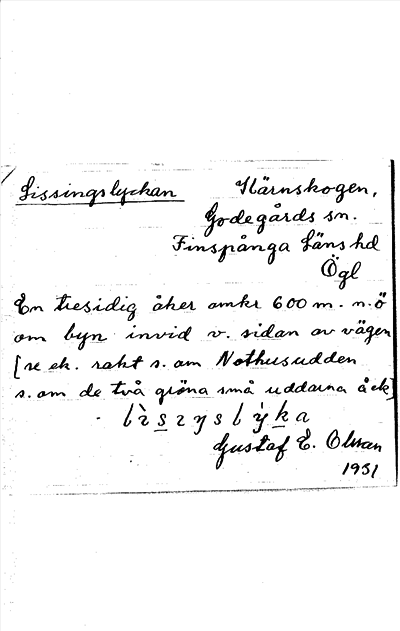 Lissingslyckan Kärnskogen,
Godegårds sn.
Finspånga Läns hd
Ögl
En tresidig åker omkr 600 m. n.ö
om byn invid v. sidan av vägen
[se ek. rakt s. om Nothusudden
s. om de två gröna små uddarna å ek]
Gustaf E. Olsson
1931